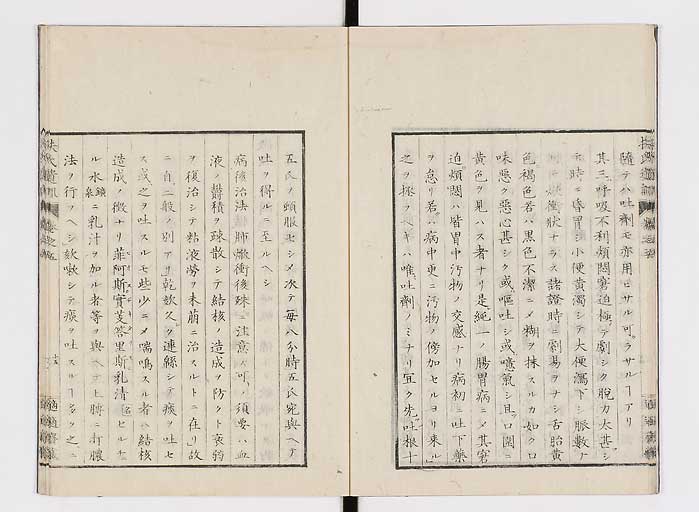 隨テハ吐劑モ亦用ヒサル可ラサルヿアリ
其三呼吸不利煩悶窘迫極テ劇シク脫力太甚シ
時ニ昏冒シ小便黄濁シテ大便瀉下シ脈數
狀ナラス諸證時ニ劇易ヲナシ舌胎黄
色褐色若ハ黒色不潔ニメ糊ヲ抹スルカ如ク口
味惡ク惡心甚シク或嘔吐シ或噫氣シ且口圍ニ
黄色ヲ見ハス者ナリ是純一ノ腸胃病ニメ其窘
迫煩悶ハ皆胃中汚物ノ交感ナリ病初ニ吐下藥
ヲ怠リ若ハ病中更ニ汚物ノ傍加セルヨリ來ル
之ヲ拯フヘキハ唯吐劑ノミナリ宜ク先吐根十
五氏ノ頓服セシメ次テ每八分時五氏宛與ヘテ
吐ヲ得ルニ至ルヘシ
病後治法 肺焮衝後殊ニ注意ス可ノ須要ハ血
液ノ欝積ヲ疎散シテ結核ノ造成ヲ防クト衰弱
ヲ復治シテ粘液勞ヲ未萠ニ治スルトニ在リ故
ニ自二般ノ別アリ乾欬久ク連緜シテ痰ヲ吐セ
ス或之ヲ吐スルモ些少ニメ喘鳴スル者ハ結核
造成ノ徴ナリ菲阿斯實芰答里斯乳清
ル水鎭泉ニ乳汁ヲ加ル者等ヲ與ヘテ上膊ニ打膿
法ヲ行フヘシ欬嗽シテ痰ヲ吐スルヿ多ク之ニ